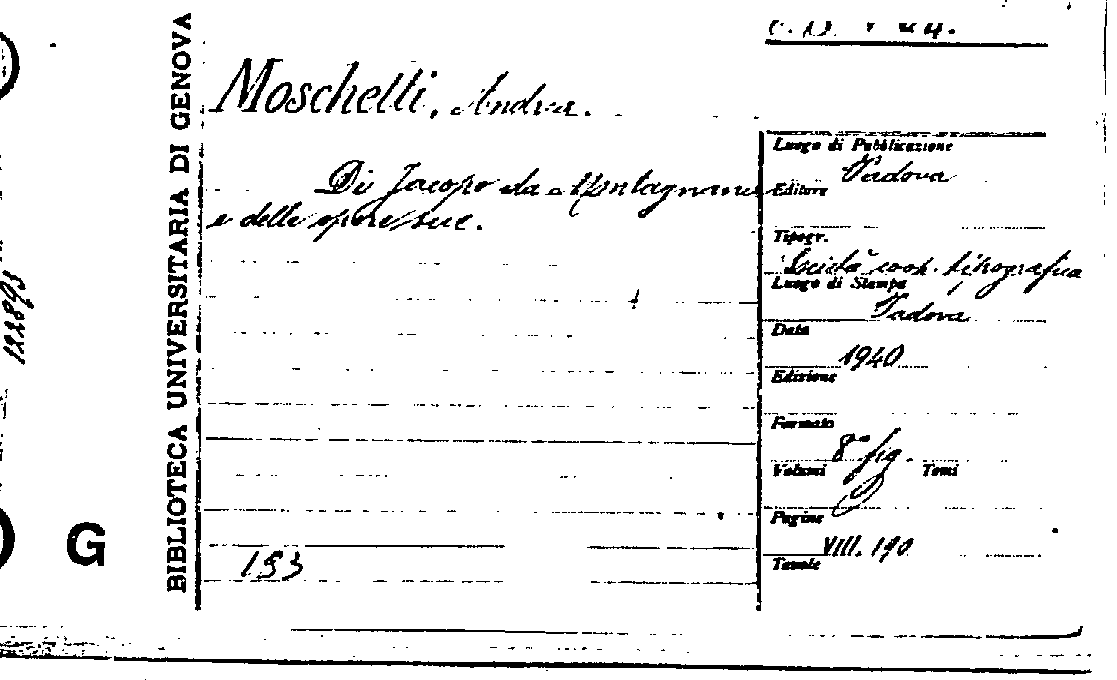 BIBLIOTECA UNIVERSITARIA DI GENOVA
G
122893
Moschetti, Andrea.
Di Jacopo da Montagnana
e delle opere sue.
193
Luogo di Pubblicazione
Padova
Editore
Tipogr.
Società coop. tipografica
Luogo di Stampa
Padova
Data
1940
Edizione
Formato
8° fig.
Volumi Tomi
Pagine
VIII. 190
Tavole